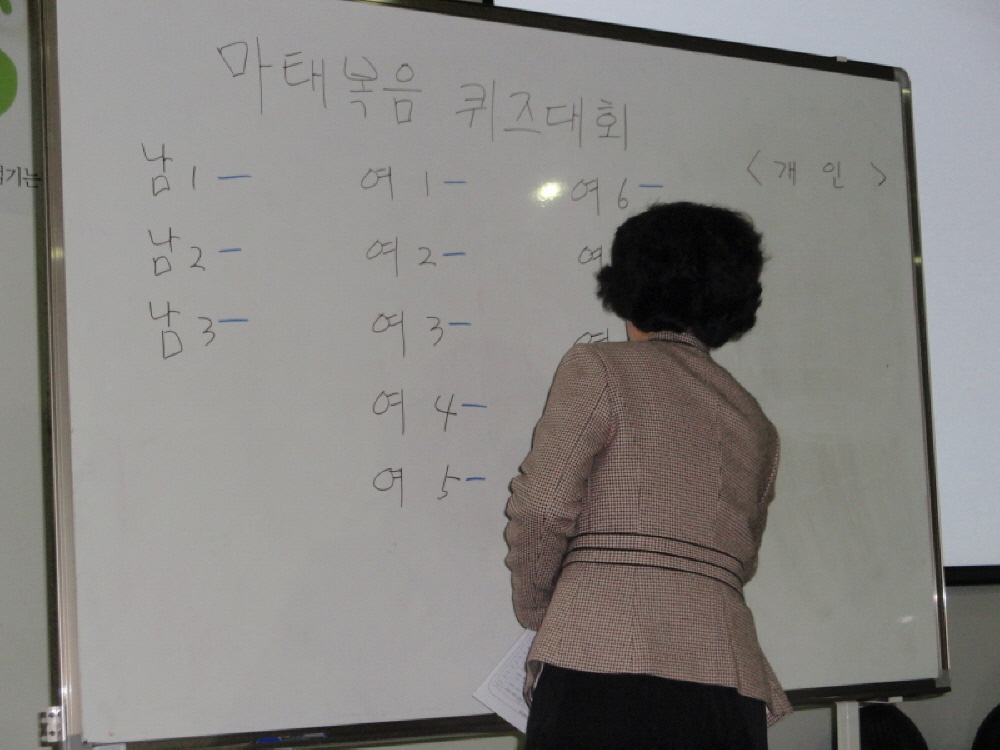 마태복음 퀴즈대회
<개인>
남 1 - 여 1 - 여 6 -
남 2 - 여 2 - 여
남 3 - 여 3 - 여
여 4 -
여 5 -